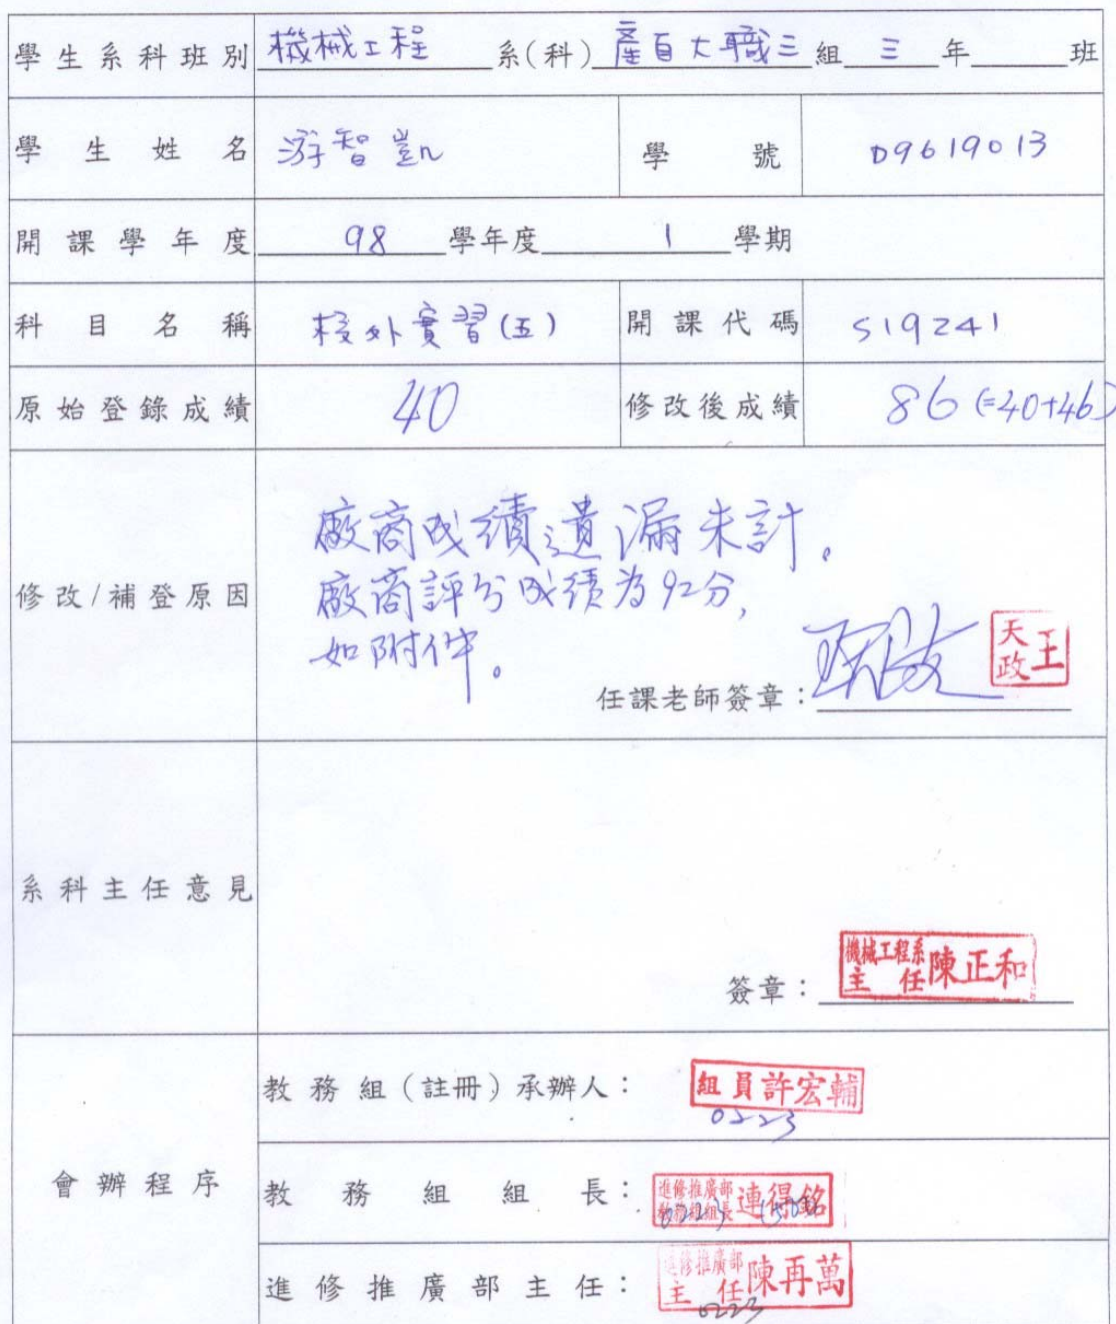 學生系科班別 機械工程 系(科) 產自大職三 組 三 年 班
學生姓名 游智凱 學號 D9619013
開課學年度 98 學年度 1 學期
科目名稱 校外實習(五) 開課代碼 S19241
原始登錄成績 40 修改後成績 86 (=40+46)
修改/補登原因
廠商成績遺漏未計。
廠商評分成績為92分,
如附件。
任課老師簽章: 王天政
系科主任意見
簽章: 機械工程系主任 陳正和
會辦程序
教務組(註冊)承辦人: 組員許宏輔
0223
教務組組長: 進修推廣部教務組組長 連得銘
進修推廣部主任: 進修推廣部主任 陳再萬
0223